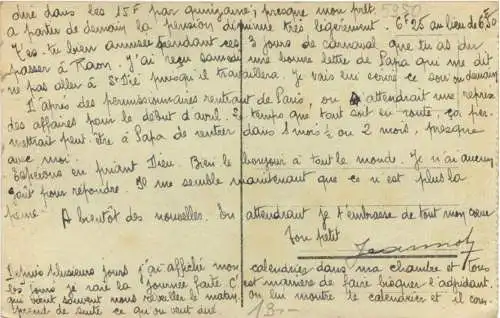 diré dans les 15F par quinzaine, presque mon prêt. 5950
a partir de demain la pension diminue très légèrement. 6F25 au lieu de 6F50
T'es-tu bien amusée pendant ces 3 jours de carnaval que tu as du
passer à Raon. J'ai reçu samedi une bonne lettre de Papa qui me dit
ne pas aller à St Dié puisqu'il travaillera. Je vais lui écrire ce soir ou demain
D'après des permissionnaires rentrant de Paris, on attendrait une reprise
des affaires pour le début d'avril. Le temps que tout soit en route, ça per-
mettrait peut-être à Papa de rentrer dans 1 mois ½ ou 2 mois, presque
avec moi.
Espérons en priant Dieu. Bien le bonjour à tout le monde. Je n'ai aucun
goût pour répondre. Il me semble maintenant que ce n'est plus la
peine. A bientôt des nouvelles. En attendant je t'embrasse de tout mon cœur
Ton petit
Jeannot
Depuis plusieurs jours j'ai affiché mon calendrier dans ma chambre et tous
les jours je raie la journée faite. C'est manière de faire bisquer l'adjudant
qui vient souvent nous réveiller le matin, on lui montre le calendrier et il com-
prend de suite ce qu'on veut dire.
13-